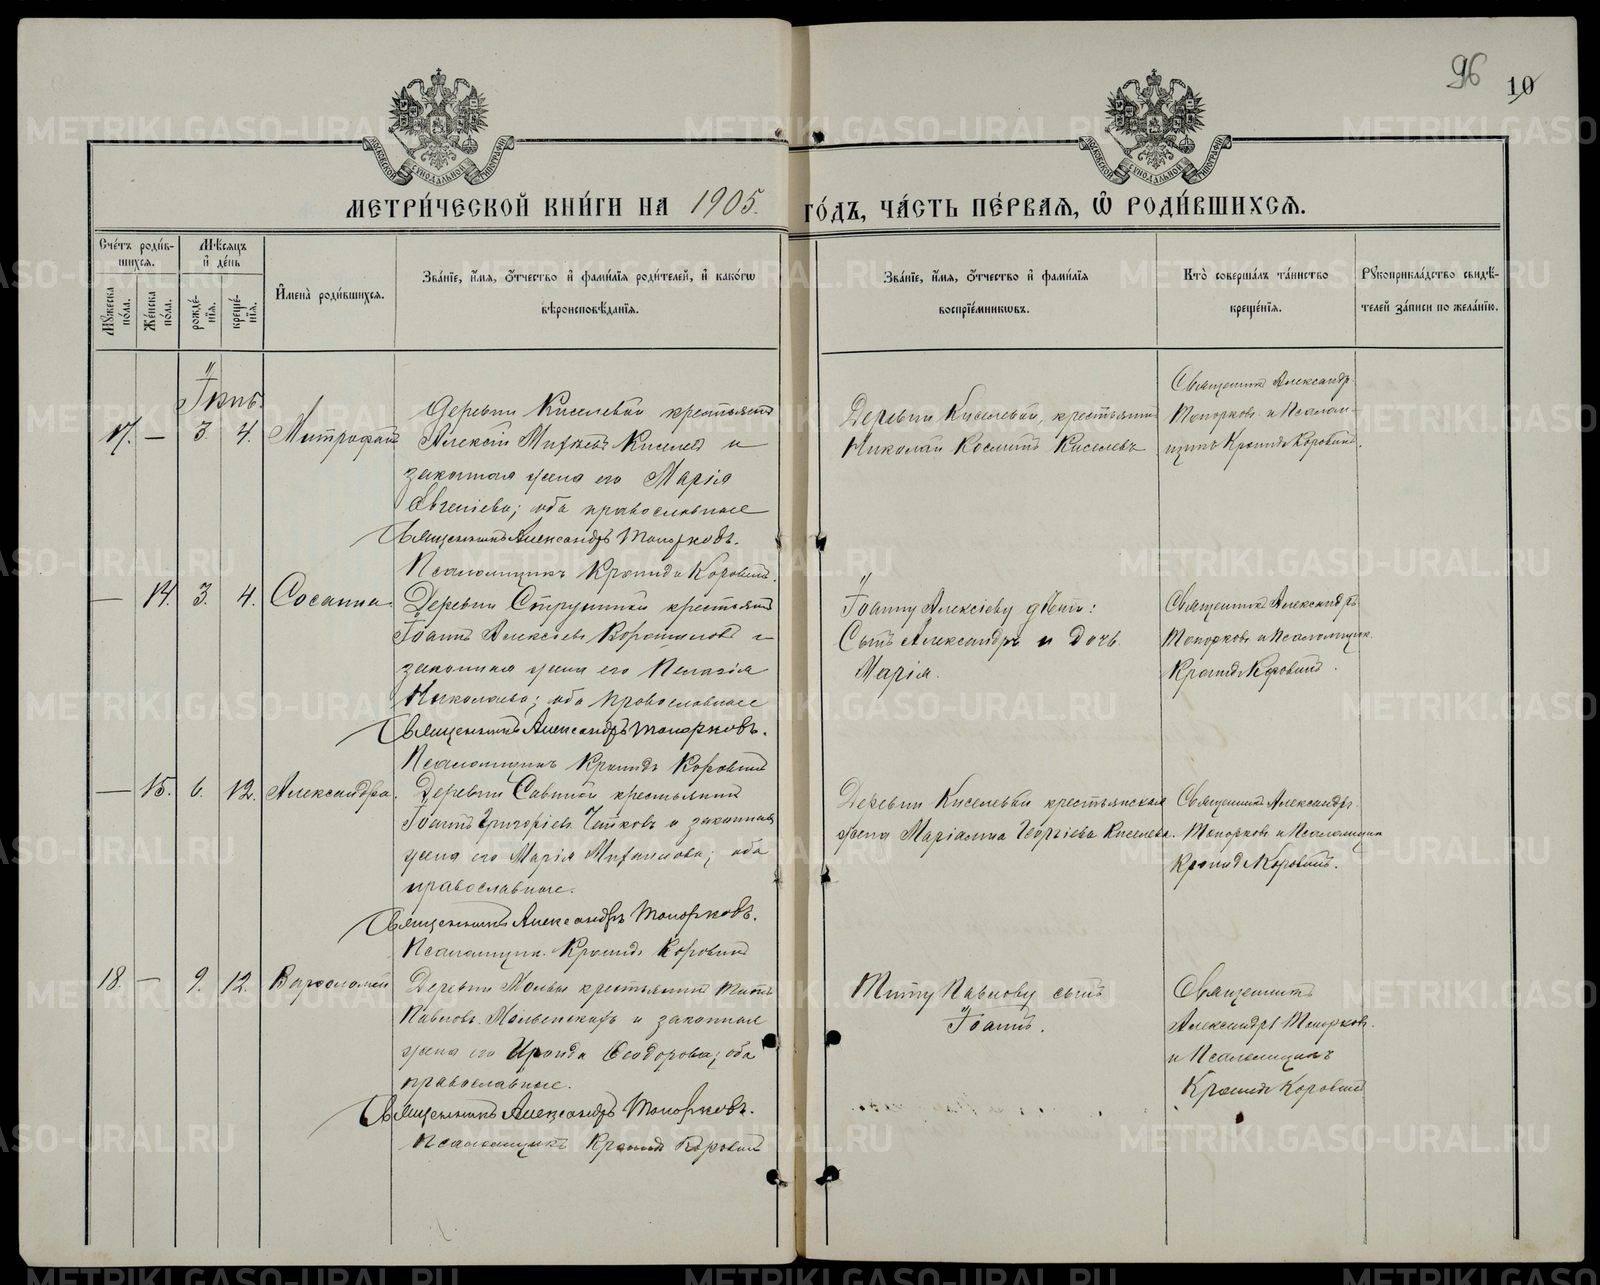 96 10
МОСКОВСКОЙ СѴНОДАЛЬНОЙ ТИПОГРАФІИ
МОСКОВСКОЙ СѴНОДАЛЬНОЙ ТИПОГРАФІИ
МЕТРИ́ЧЕСКОЙ КНИ́ГИ НА 1905. ГО́ДЪ, ЧА́СТЬ ПЕ́РВАЯ, Ѡ РОДИ́ВШИХСЯ.
Сче́тъ роди́вшихся.
Мꙋ́жеска по́ла.
Же́нска по́ла.
Мѣ́сяцъ и҆ де́нь
рожде́нїя.
креще́нїя.
И҆мена̀ роди́вшихся.
Зва́нїе, и҆́мя, ѻ҆́тчество и҆ фами́лїя роди́телей, и҆ како́гѡ вѣроисповѣ́данїя.
Зва́нїе, и҆́мя, ѻ҆́тчество и҆ фами́лїя воспрїе́мниковъ.
Кто̀ соверша́лъ та́инство креще́нїя.
Рꙋкоприкла́дство свидѣ́телей за́писи по жела́нїю.
Іюнь.
17. — 3. 4. Митрофанъ
Деревни Киселевой крестьянинъ
Алексій Киселевъ и
законная жена его Марія
Евгеніева; оба православные
Священникъ Александръ Топорковъ.
Псаломщикъ Кронидъ Коровинъ.
Деревни Киселевой, крестьянинъ
Николай Косминъ Киселевъ
Священникъ Александръ
Топорковъ и Псалом-
щикъ Кронидъ Коровинъ.
— 14. 3. 4. Сосанна.
Деревни крестьянинъ
Іоаннъ Алексіевъ и
законная жена его Пелагія
Николаева; оба православные
Священникъ Александръ Топорковъ.
Псаломщикъ Кронидъ Коровинъ
Іоанну Алексіеву дѣти:
Сынъ Александръ и дочь
Марія.
Священникъ Александръ
Топорковъ и Псаломщик.
Кронидъ Коровинъ.
— 15. 6. 12. Александра.
Деревни Савиной крестьянинъ
Іоаннъ Григоріевъ и законная
жена его Марія Михаилова; оба
православные.
Священникъ Александръ Топорковъ.
Псаломщик. Кронидъ Коровинъ
Деревни Киселевой крестьянская
жена Маріамна Георгіева Киселева.
Священникъ Александръ
Топорковъ и Псаломщикъ
Кронидъ Коровинъ.
18. — 9. 12. Варѳоломей
Деревни крестьянинъ Титъ
Павловъ и законная
жена его Ираида Ѳеодорова; оба
православные.
Священникъ Александръ Топорковъ.
Псаломщикъ Кронидъ Коровинъ
Титу Павлову сынъ
Іоаннъ.
Священникъ
Александръ Топорковъ.
и Псаломщикъ
Кронидъ Коровинъ
METRIKI.GASO-URAL.RU